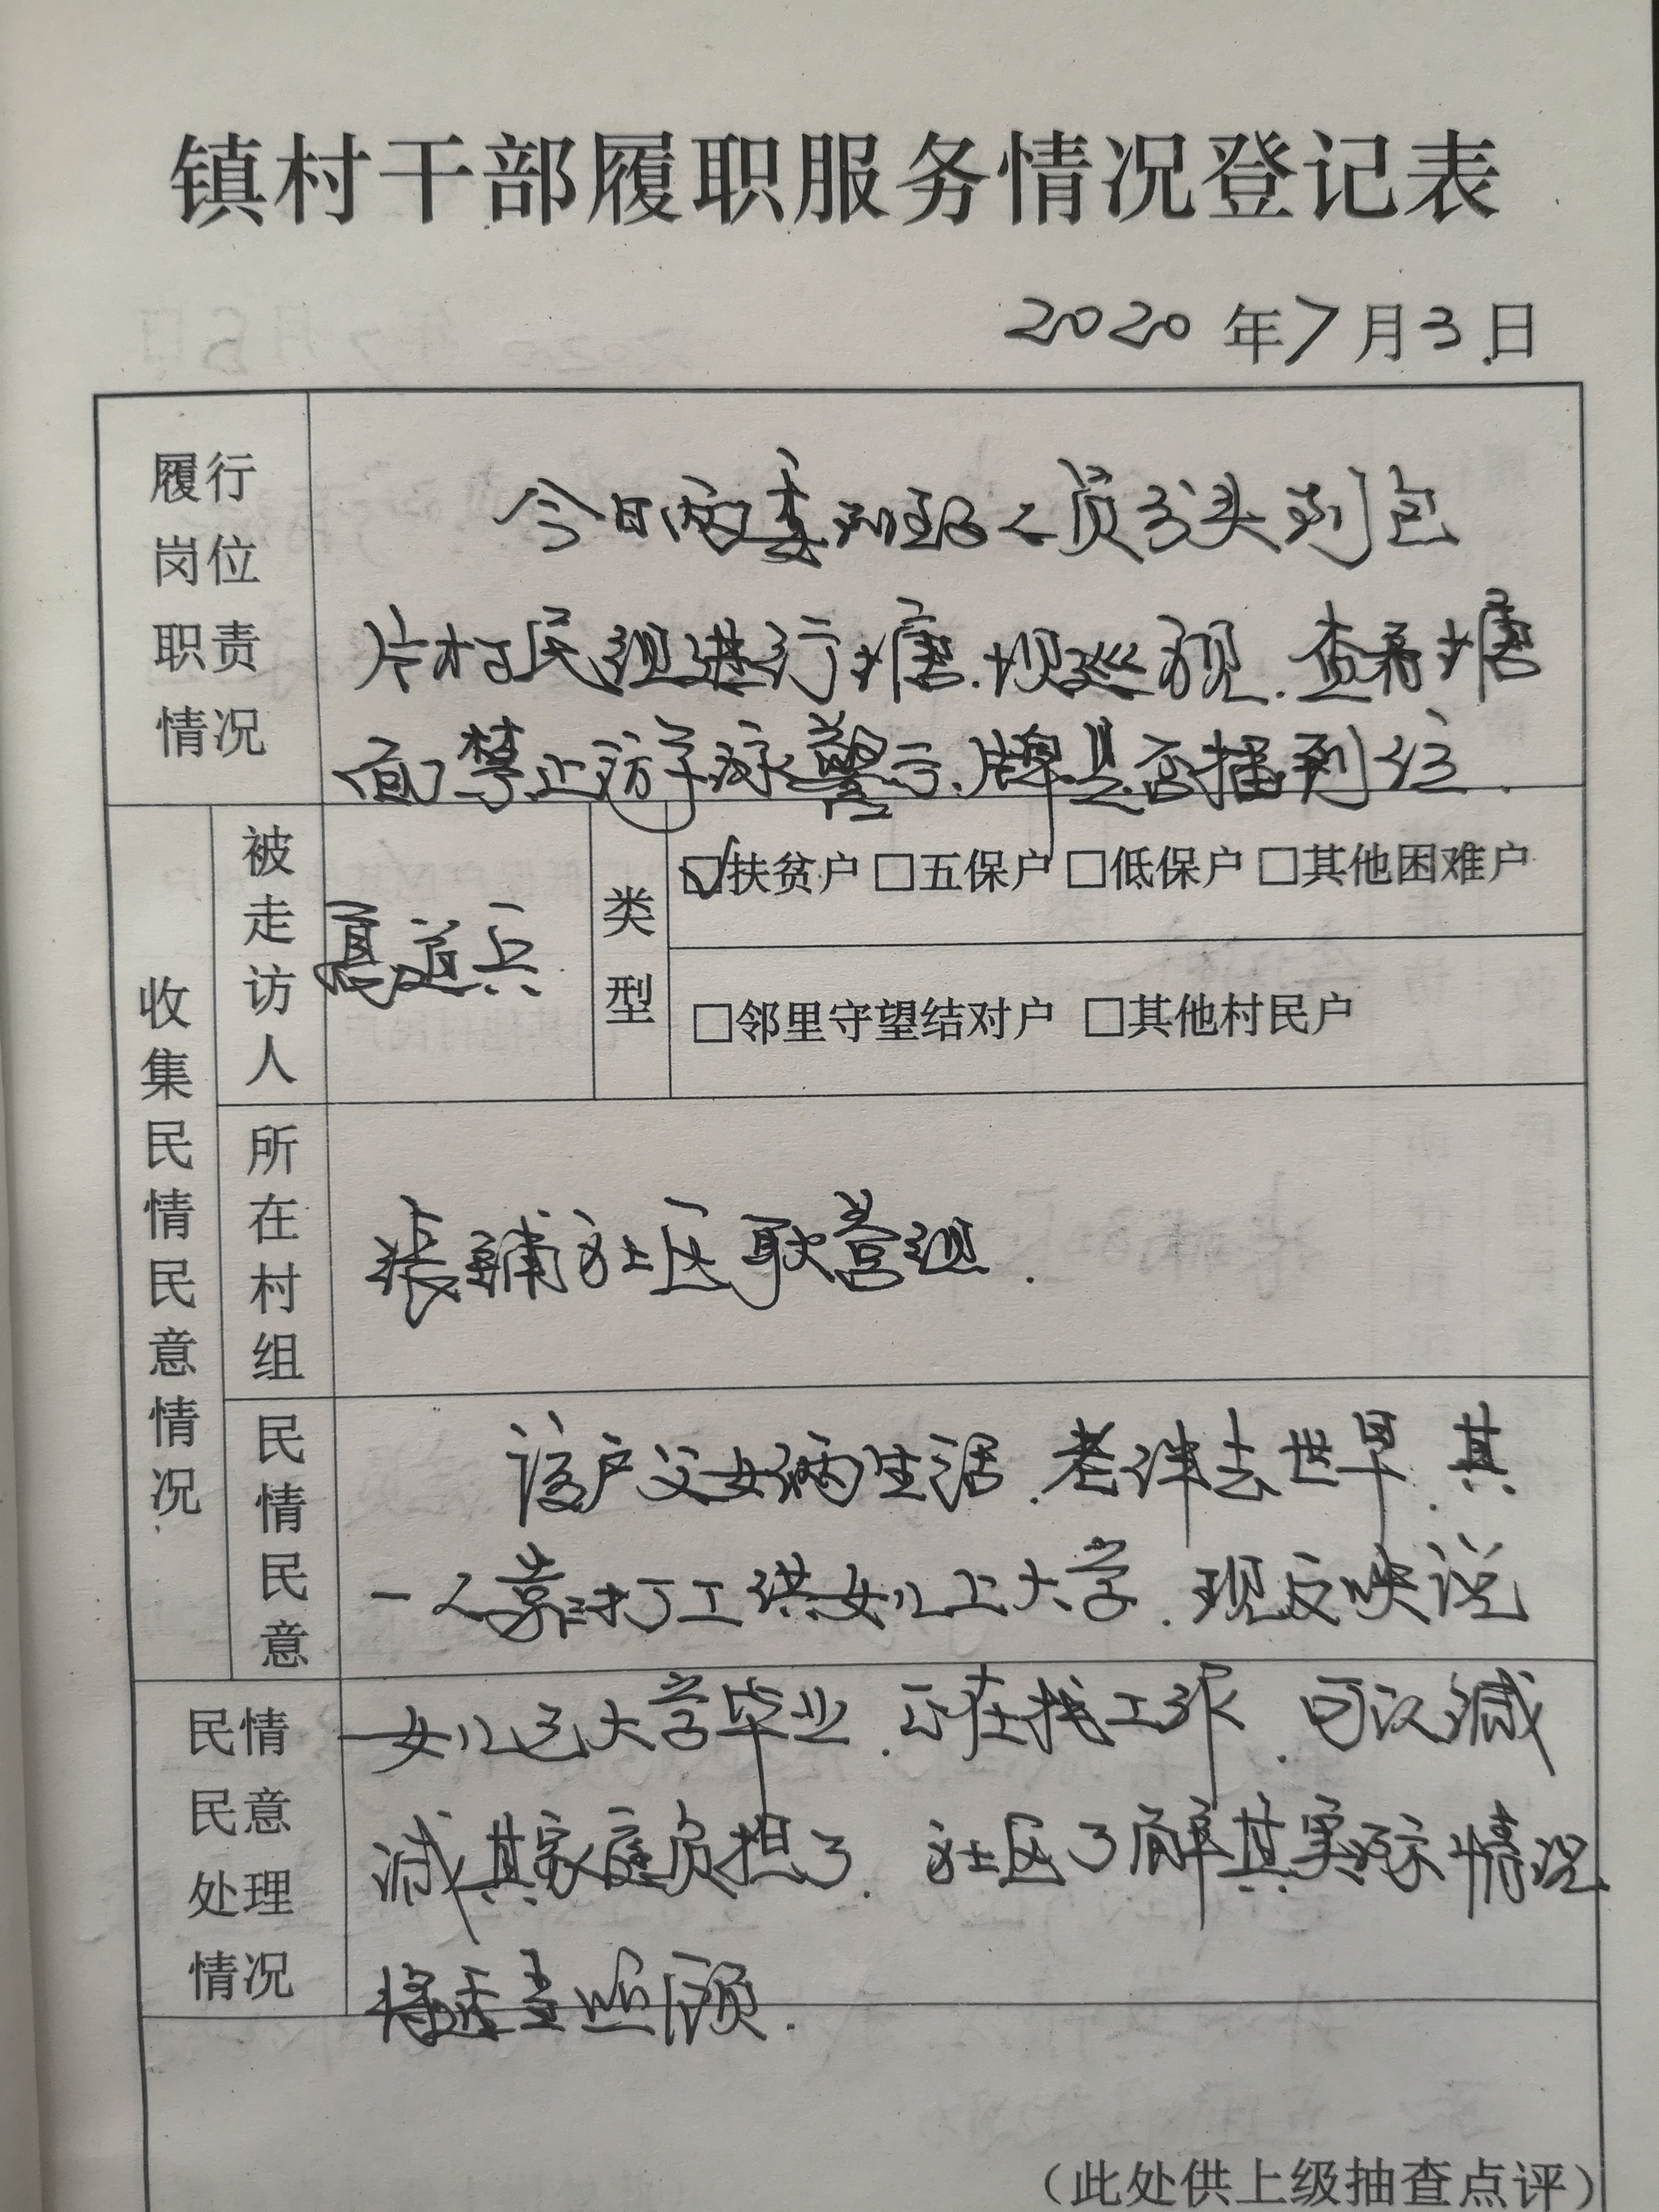 镇村干部履职服务情况登记表
2020年7月3日
履行
岗位
职责
情况
今日两委班人员分头到包
片村民组进行塘.坝巡视.查看塘
面禁止游泳警示牌是否插到位.
收集民情民意情况
被走访人
道兵
类型
☑扶贫户 □五保户 □低保户 □其他困难户
□邻里守望结对户 □其他村民户
所在村组
张铺社区联营组.
民情民意
该户父女俩生活.老伴去世早.其
一人靠打工供女儿上大学.现反映说
民情
民意
处理
情况
女儿已大学毕业.正在找工作.可以减
减其家庭负担了.社区了解其实际情况
将适当照顾.
(此处供上级抽查点评)